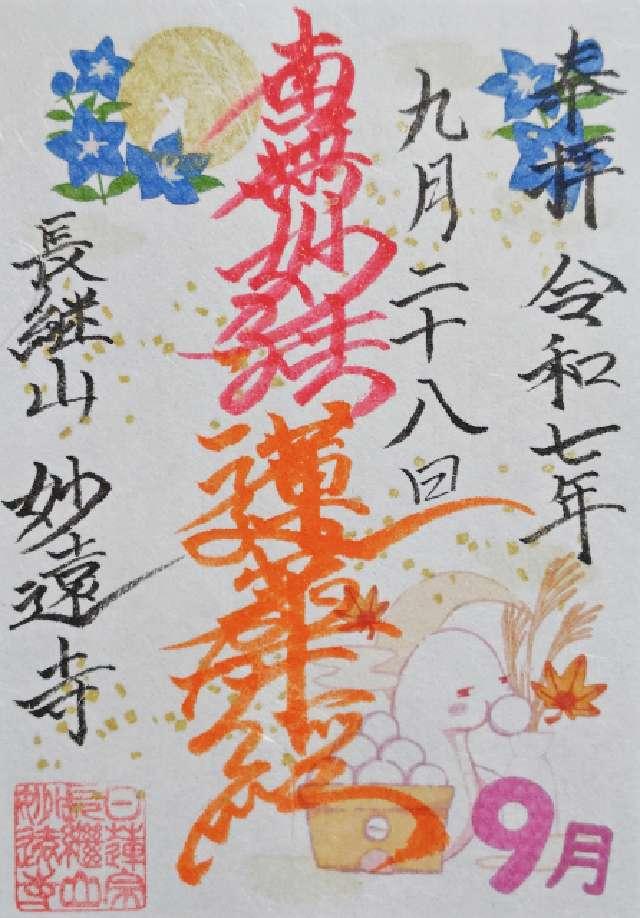 奉拝 令和七年
九月二十八日
南無妙法蓮華経
長継山 妙遠寺
9月
日蓮宗
長継山
妙遠寺